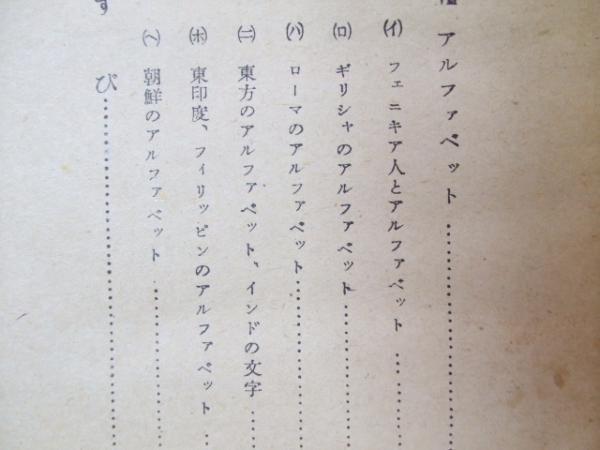 アルファベット……………………
(イ) フェニキア人とアルファベット………
(ロ) ギリシャのアルファベット………………
(ハ) ローマのアルファベット…………………
(ニ) 東方のアルファベット、インドの文字……
(ホ) 東印度、フィリッピンのアルファベット…
(ヘ) 朝鮮のアルファベット……………………
す び……………………………………